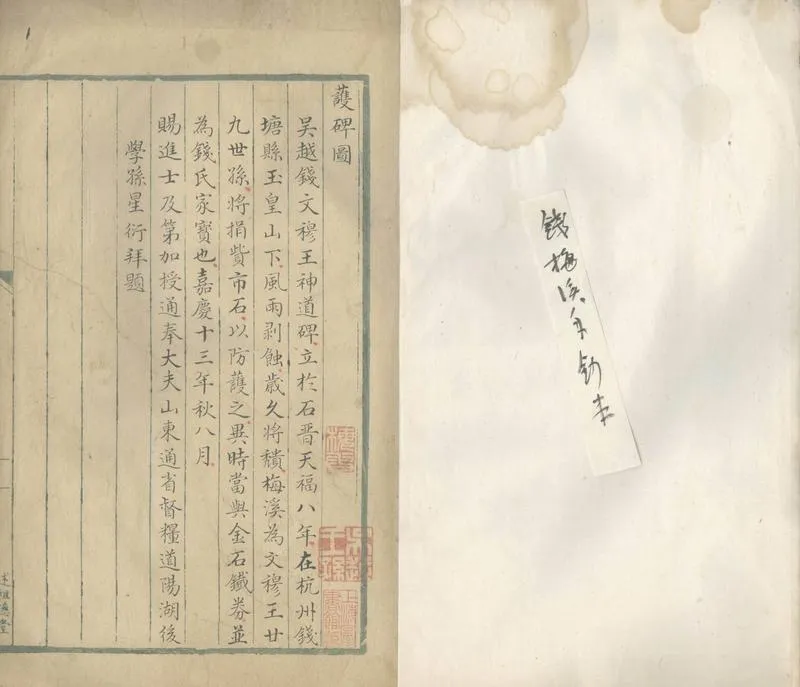 錢梅溪手鈔本
䕶碑圖
吳越錢文穆王神道碑立於石晋天福八年在杭州錢
塘縣玉皇山下風雨剥蝕歲久將穨梅溪為文穆王廿
九世孫將捐貲市石以防䕶之異時當與金石鐵券並
為錢氏家寶也嘉慶十三年秋八月
賜進士及第加授通奉大夫山東通省督糧道陽湖後
學孫星衍拜題
上海圖書館藏
述祖德堂